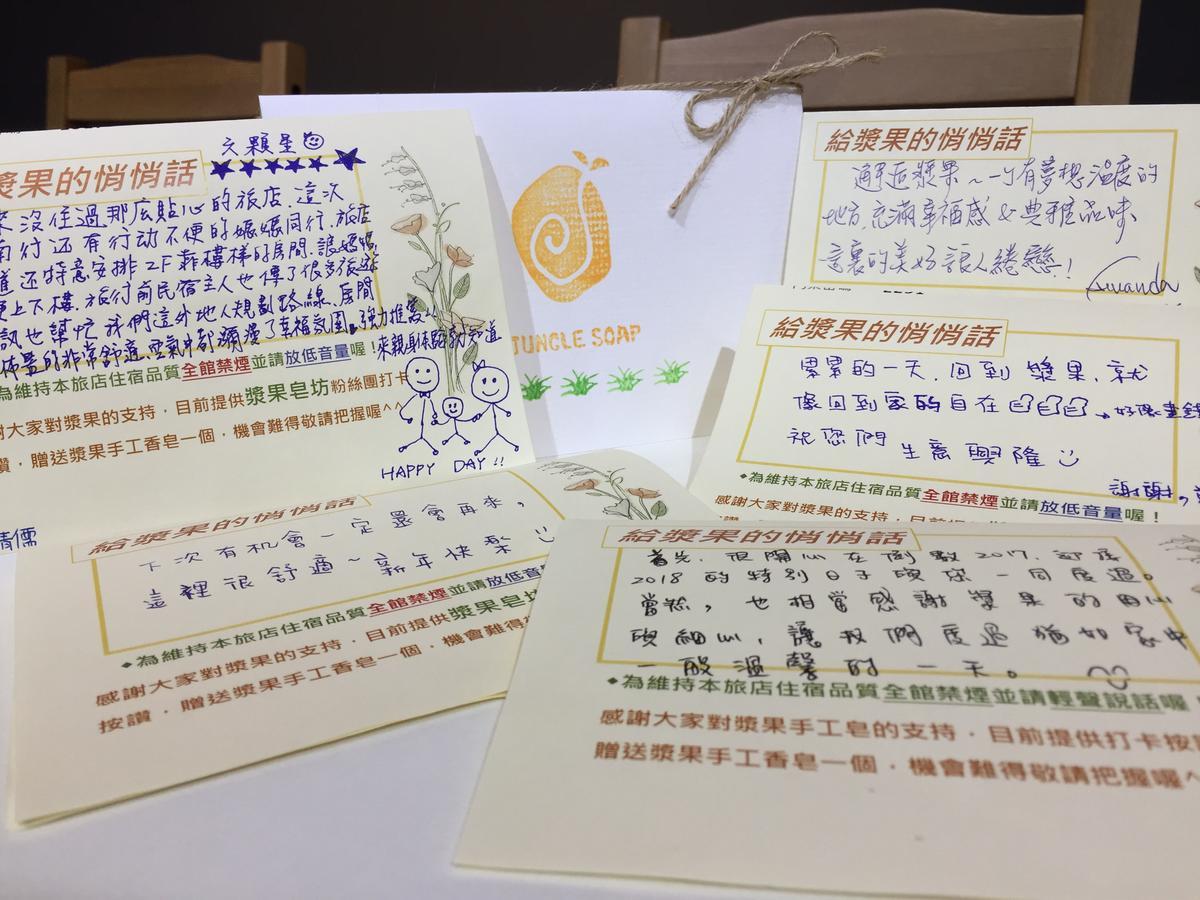 六顆星
漿果的悄悄話
來沒住過那庅貼心的旅店.這次
南行还有行动不便的媽媽同行.旅店
道还特意安排2F
的房間.讓媽媽
更上下樓.旅行前民宿主人也傳了很多旅遊
訊也幫忙我們這外地人規劃路線.房間
佈置的非常舒適.空氣中都瀰漫了幸福氛圍.強力推薦
來親身体驗就知道
為維持本旅店住宿品質全館禁煙並請放低音量喔！
謝大家對漿果的支持，目前提供漿果皂坊粉絲團打卡
讚，贈送漿果手工香皂一個，機會難得敬請把握喔^^
HAPPY DAY!!
JUNGLE SOAP
給漿果的悄悄話
邂逅漿果~一個有夢想溫度的
地方,充滿幸福感&典雅品味
這裏的美好讓人綣戀!
給漿果的悄悄話
累累的一天.回到漿果.就
像回到家的自在
好像畫錯
祝您們生意興隆
謝謝,
◆為維持本旅店住宿品質全館禁煙並請放低音量喔！
感謝大家對漿果的支持，目前提供
給漿果的悄悄話
下次有机會一定還會再來,
這裡很舒適~新年快樂
◆為維持本旅店住宿品質全館禁煙並請放低音
感謝大家對漿果的支持，目前提供漿果皂坊
按讚，贈送漿果手工香皂一個，機會難得
給漿果的悄悄話
首先,很開心在倒數2017,迎接
2018的特別日子與您一同度過。
當然,也相當感謝漿果的用心
與細心,讓我們度過猶如家中
一般溫馨的一天。
◆為維持本旅店住宿品質全館禁煙並請輕聲說話喔
感謝大家對漿果手工皂的支持，目前提供打卡按
贈送漿果手工香皂一個，機會難得敬請把握喔^